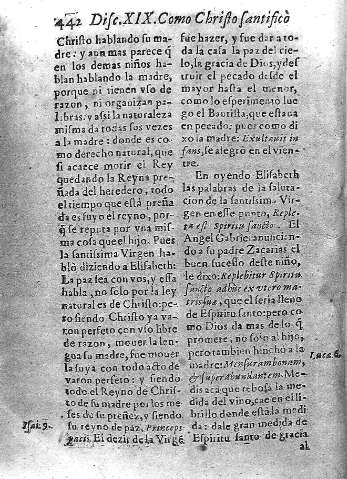 442 Disc.XIX.Como Christo santificò
Christo hablando su ma-
dre: y aun mas parece q̃
en los demas niños ha-
blan hablando la madre,
porque ni tienen vso de
razon, ni organizan pa-
labras: y assi la naturaleza
misma da todas sus vozes
a la madre: donde es co-
mo derecho natural, que
si acaece morir el Rey
quedando la Reyna pre-
ñada del heredero, todo
el tiempo que està preña
da es suyo el reyno, por-
q̃ se reputa por vna mis-
ma cosa que el hijo. Pues
la santissima Virgen ha-
blò diziendo a Elisabeth:
La paz sea con vos, y essa
habla, no solo por la ley
natural es de Christo: pe-
ro siendo Christo ya va-
ron perfeto con vso libre
de razon, mouer la len-
gua su madre, fue mouer
la suya con todo acto de
varon perfeto: y siendo
todo el Reyno de Chris-
to de su madre por los me
ses de su preñez, y siendo
su reyno de paz, Princeps
pacis. El dezir de la Virgẽ
Isai. 9.
fue hazer, y fue dar a to-
da la casa la paz del cie-
lo, la gracia de Dios, y des-
truir el pecado desde el
mayor hasta el menor,
como lo esperimento lue
go el Bautista, que estaua
en pecado: pues como di-
xo la madre: Exultauit in
fans, se alegrò en el vien-
tre.
En oyendo Elisabeth
las palabras de la saluta-
cion de la santissima Vir-
gen en este punto, Reple-
ta est Spiritu sancto. El
Angel Gabriel anuncian-
do a su padre Zacarias el
buen sucesso deste niño,
le dixo: Replebitur Spiritu
sancto adhuc ex vtero ma-
tris suæ, que el seria lleno
de Espiritu santo: pero co-
mo Dios da mas de lo q̃
promete, no solo al hijo,
pero tambien hinchò a la
madre: Mensuram bonam,
& superabundantem. Me-
dis aca que rebosa la me-
dida del vino, cae en el li-
brillo donde està la medi-
da: dale gran medida de
Espiritu santo de gracia
Luca 6.
al